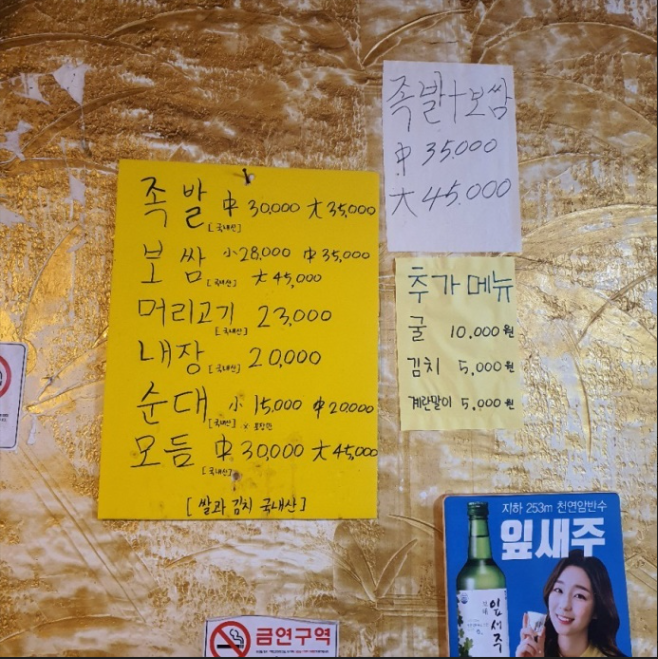 족발+보쌈
中 35.000
大 45.000
족발 中 30,000 大 35,000
[국내산]
보쌈 小 28,000 中 35,000
[국내산] 大 45,000
머리고기 23,000
[국내산]
내장 20,000
[국내산]
순대 小 15,000 中 20,000
[국내산]
모듬 中 30,000 大 45,000
[국내산]
[쌀과 김치 국내산]
추가메뉴
굴 10,000원
김치 5,000원
계란말이 5,000원
지하 253m 천연암반수
잎새주
잎새주
금연구역